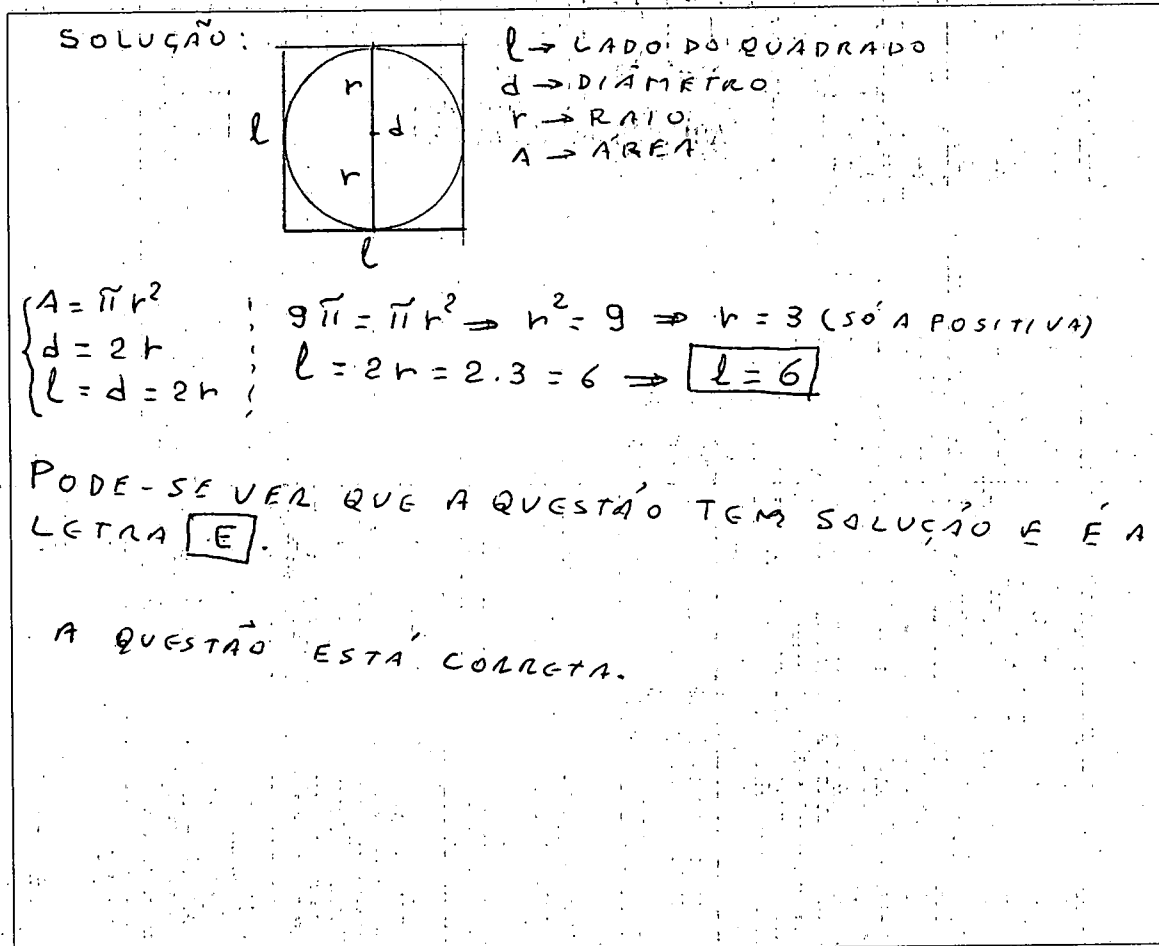 SOLUÇÃO:
l → LADO DO QUADRADO
d → DIÂMETRO
r → RAIO
A → ÁREA
r
l
d
r
l
A = πr²
d = 2r
l = d = 2r
9π = πr² ⇒ r² = 9 ⇒ r = 3 (SÓ A POSITIVA)
l = 2r = 2.3 = 6 ⇒ l = 6
PODE-SE VER QUE A QUESTÃO TEM SOLUÇÃO E É A
LETRA E.
A QUESTÃO ESTÁ CORRETA.